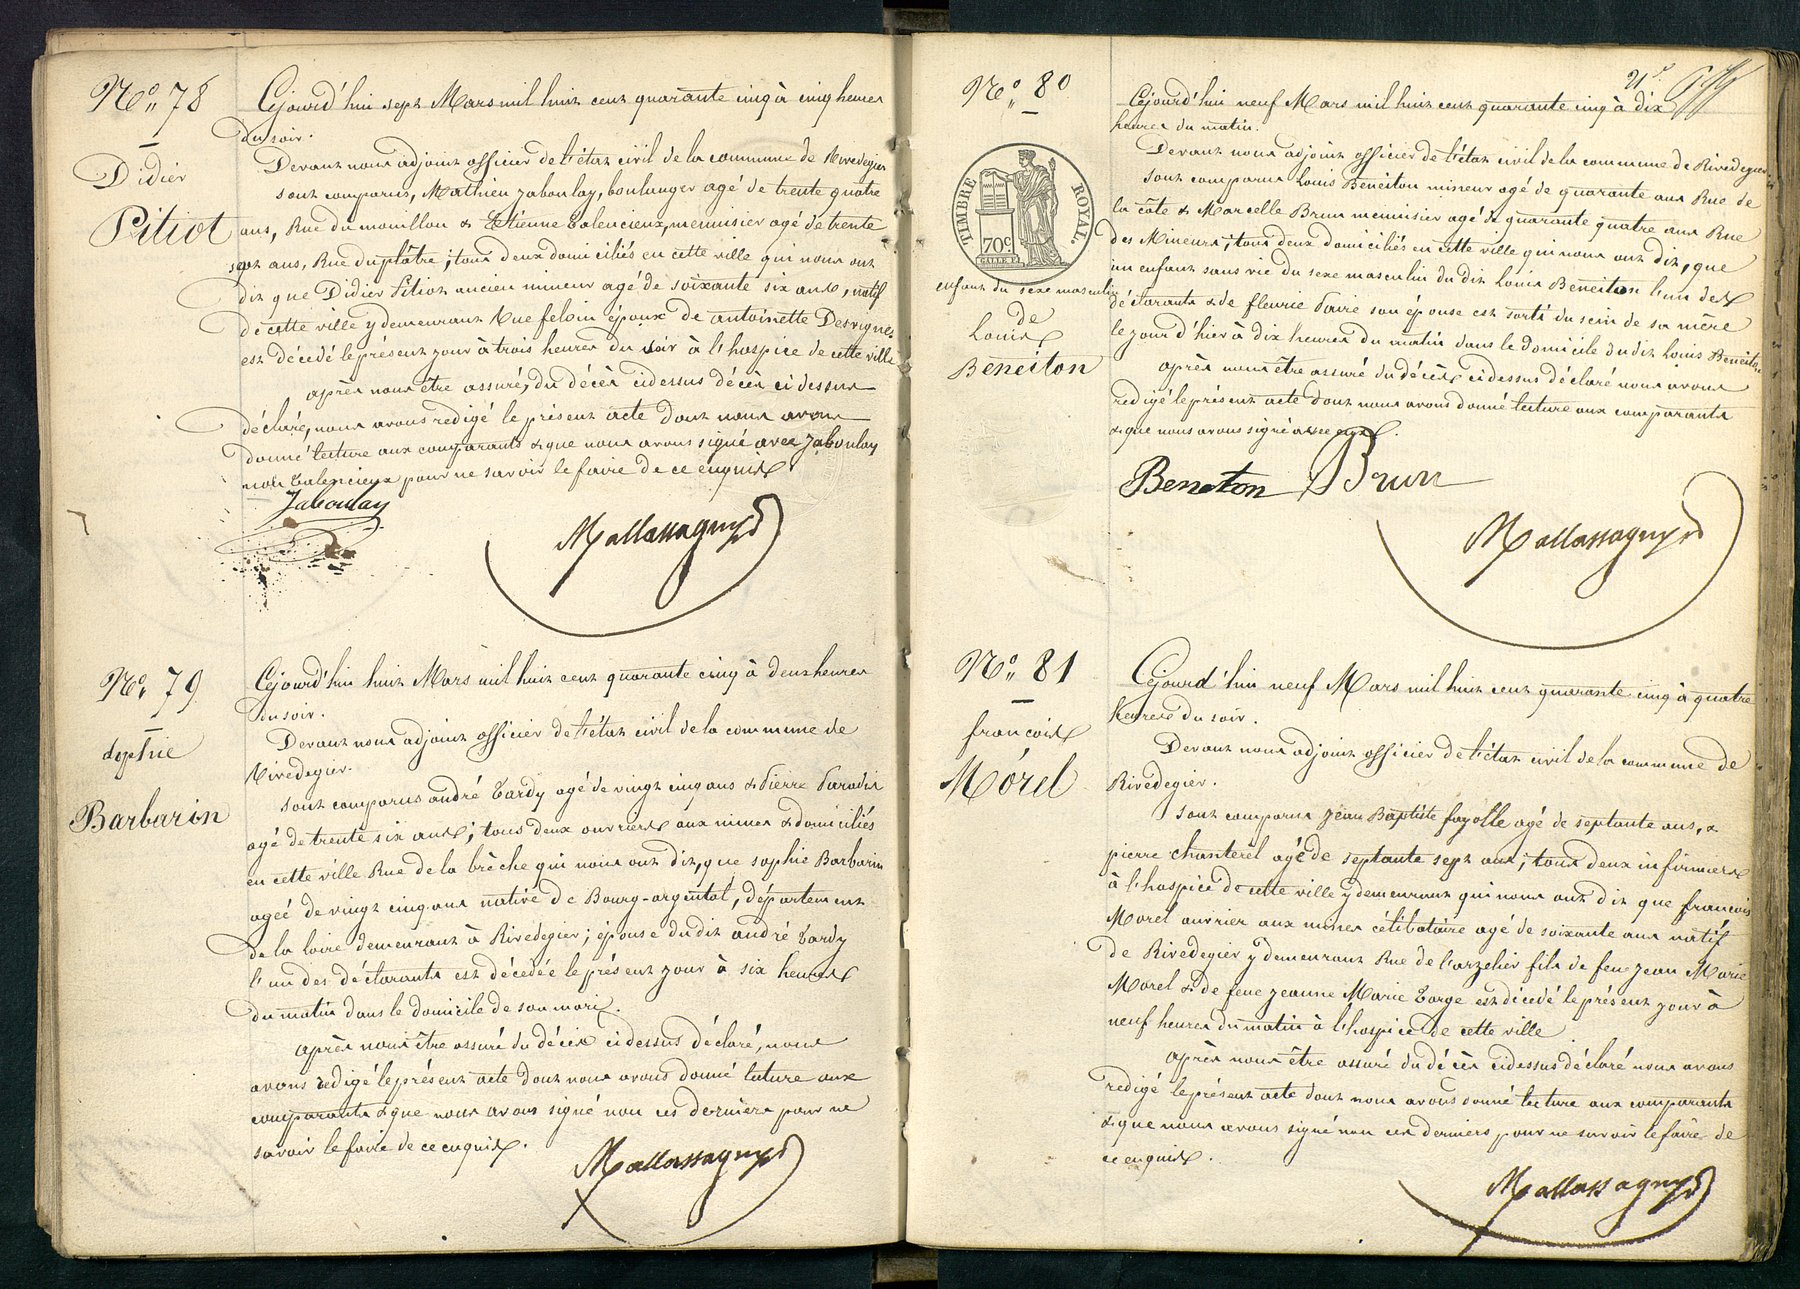 N° 78
Didier
Pitiot
Cejourd'hui sept Mars mil huit cent quarante cinq à cinq heures
du soir.
Devant nous adjoint officier de l'état civil de la commune de Rivedegier
sont comparus, Mathieu Jaboulay, boulanger agé de trente quatre
ans, Rue du mouillon & Etienne Valencieux, menuisier agé de trente
sept ans, Rue du plâtre; tous deux domiciliés en cette ville qui nous ont
dit que Didier Pitiot ancien mineur agé de soixante six ans, natif
de cette ville y demeurant Rue feloin époux de antoinette Desvignes
est décedé le présent jour à trois heures du soir à l'hospice de cette ville
après nous être assuré, du décès cidessus décès ci dessus
déclaré, nous avons redigé le présent acte dont nous avons
donné lecture aux comparants & que nous avons signé avec Jaboulay
non Valencieux pour ne savoir le faire de ce enquis.
Jaboulay
Mallassagny
N° 79
Sophie
Barbarin
Cejourd'hui huit Mars mil huit cent quarante cinq à deux heures
du soir.
Devant nous adjoint officier de l'état civil de la commune de
Rivedegier.
sont comparus andré Tardy agé de vingt cinq ans & Pierre Paradis
agé de trente six ans; tous deux ouvriers aux mines & domiciliés
en cette ville Rue de la brèche qui nous ont dit, que sophie Barbarin
ageé de vingt cinq ans native de Bourg-argental, département
de la loire demeurant à Rivedegier; épouse du dit andré Tardy
l'un des déclarants est décedée le présent jour à six heures
du matin dans le domicile de son mari.
après nous être assuré du décès cidessus déclaré, nous
avons redigé le présent acte dont nous avons donné lecture aux
comparants & que nous avons signé non ces derniers pour ne
savoir le faire de ce enquis.
Mallassagny
N° 80
TIMBRE ROYAL.
70c
enfant du sexe masculin
de
Louis
Beneiton
Cejourd'hui neuf Mars mil huit cent quarante cinq à dix
heures du matin.
Devant nous adjoint officier de l'état civil de la commune de Rivedegier
sont comparus Louis Beneiton mineur agé de quarante ans Rue de
la côte & Marcelle Brun menuisier agé de quarante quatre ans Rue
des Mineurs; tous deux domiciliés en cette ville qui nous ont dit, que
un enfant sans vie du sexe masculin du dit Louis Beneiton l'un des
déclarants & de fleurie faure son épouse est sorti du sein de sa mère
le jour d'hier à dix heures du matin dans le domicile du dit Louis Beneiton
après nous être assuré du décès cidessus déclaré nous avons
redigé le présent acte dont nous avons donné lecture aux comparants
& que nous avons signé avec eux.
Beneton Brun
Mallassagny
N° 81
francois
Mórel
Cejourd'hui neuf Mars mil huit cent quarante cinq à quatre
heures du soir.
Devant nous adjoint officier de l'état civil de la commune de
Rivedegier.
sont comparus Jean Baptiste fayolle agé de septante ans, &
pierre chanterel agé de septante sept ans; tous deux infirmiers
à l'hospice de cette ville y demeurant qui nous ont dit que francois
Morel ouvrier aux mines célibataire agé de soixante ans natif
de Rivedegier y demeurant Rue de l'arzelier fils de feu jean Marie
Morel & de feue jeanne Marie Farge est décedé le présent jour à
neuf heures du matin à l'hospice de cette ville
après nous être assuré du décès cidessus déclaré nous avons
redigé le présent acte dont nous avons donné lecture aux comparants
& que nous avons signé non ces derniers pour ne savoir le faire de
ce enquis.
Mallassagny